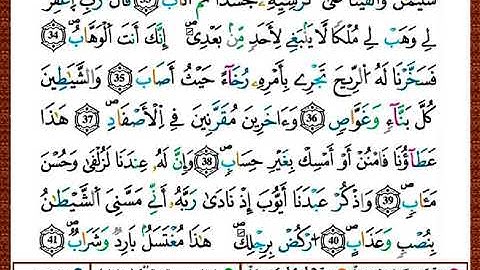 سُلَيْمَٰنَ وَأَلْقَيْنَا عَلَىٰ كُرْسِيِّهِۦ جَسَدًا ثُمَّ أَنَابَ 33 قَالَ رَبِّ اِغْفِرْ
لِے وَهَبْ لِے مُلْكًا لَّا يَنۢبَغِے لِأَحَدٍ مِّنۢ بَعْدِيَ إِنَّكَ أَنتَ اَلْوَهَّابُ 34
فَسَخَّرْنَا لَهُ اُلرِّيحَ تَجْرِے بِأَمْرِهِۦ رُخَآءً حَيْثُ أَصَابَ 35 وَالشَّيَٰطِينَ
كُلَّ بَنَّآءٍ وَغَوَّاصٍ 36 وَءَاخَرِينَ مُقَرَّنِينَ فِے اِلْأَصْفَادِ 37 هَٰذَا
عَطَآؤُنَا فَامْنُنْ أَوْ أَمْسِكْ بِغَيْرِ حِسَابٍ 38 وَإِنَّ لَهُۥ عِندَنَا لَزُلْفَىٰ وَحُسْنَ
مَـَٔابٍ 39 وَاذْكُرْ عَبْدَنَآ أَيُّوبَ إِذْ نَادَىٰ رَبَّهُۥٓ أَنِّے مَسَّنِيَ اَلشَّيْطَٰنُ
بِنُصْبٍ وَعَذَابٍ 40 اُرْكُضْ بِرِجْلِكَ هَٰذَا مُغْتَسَلُۢ بَارِدٌ وَشَرَابٌ 41